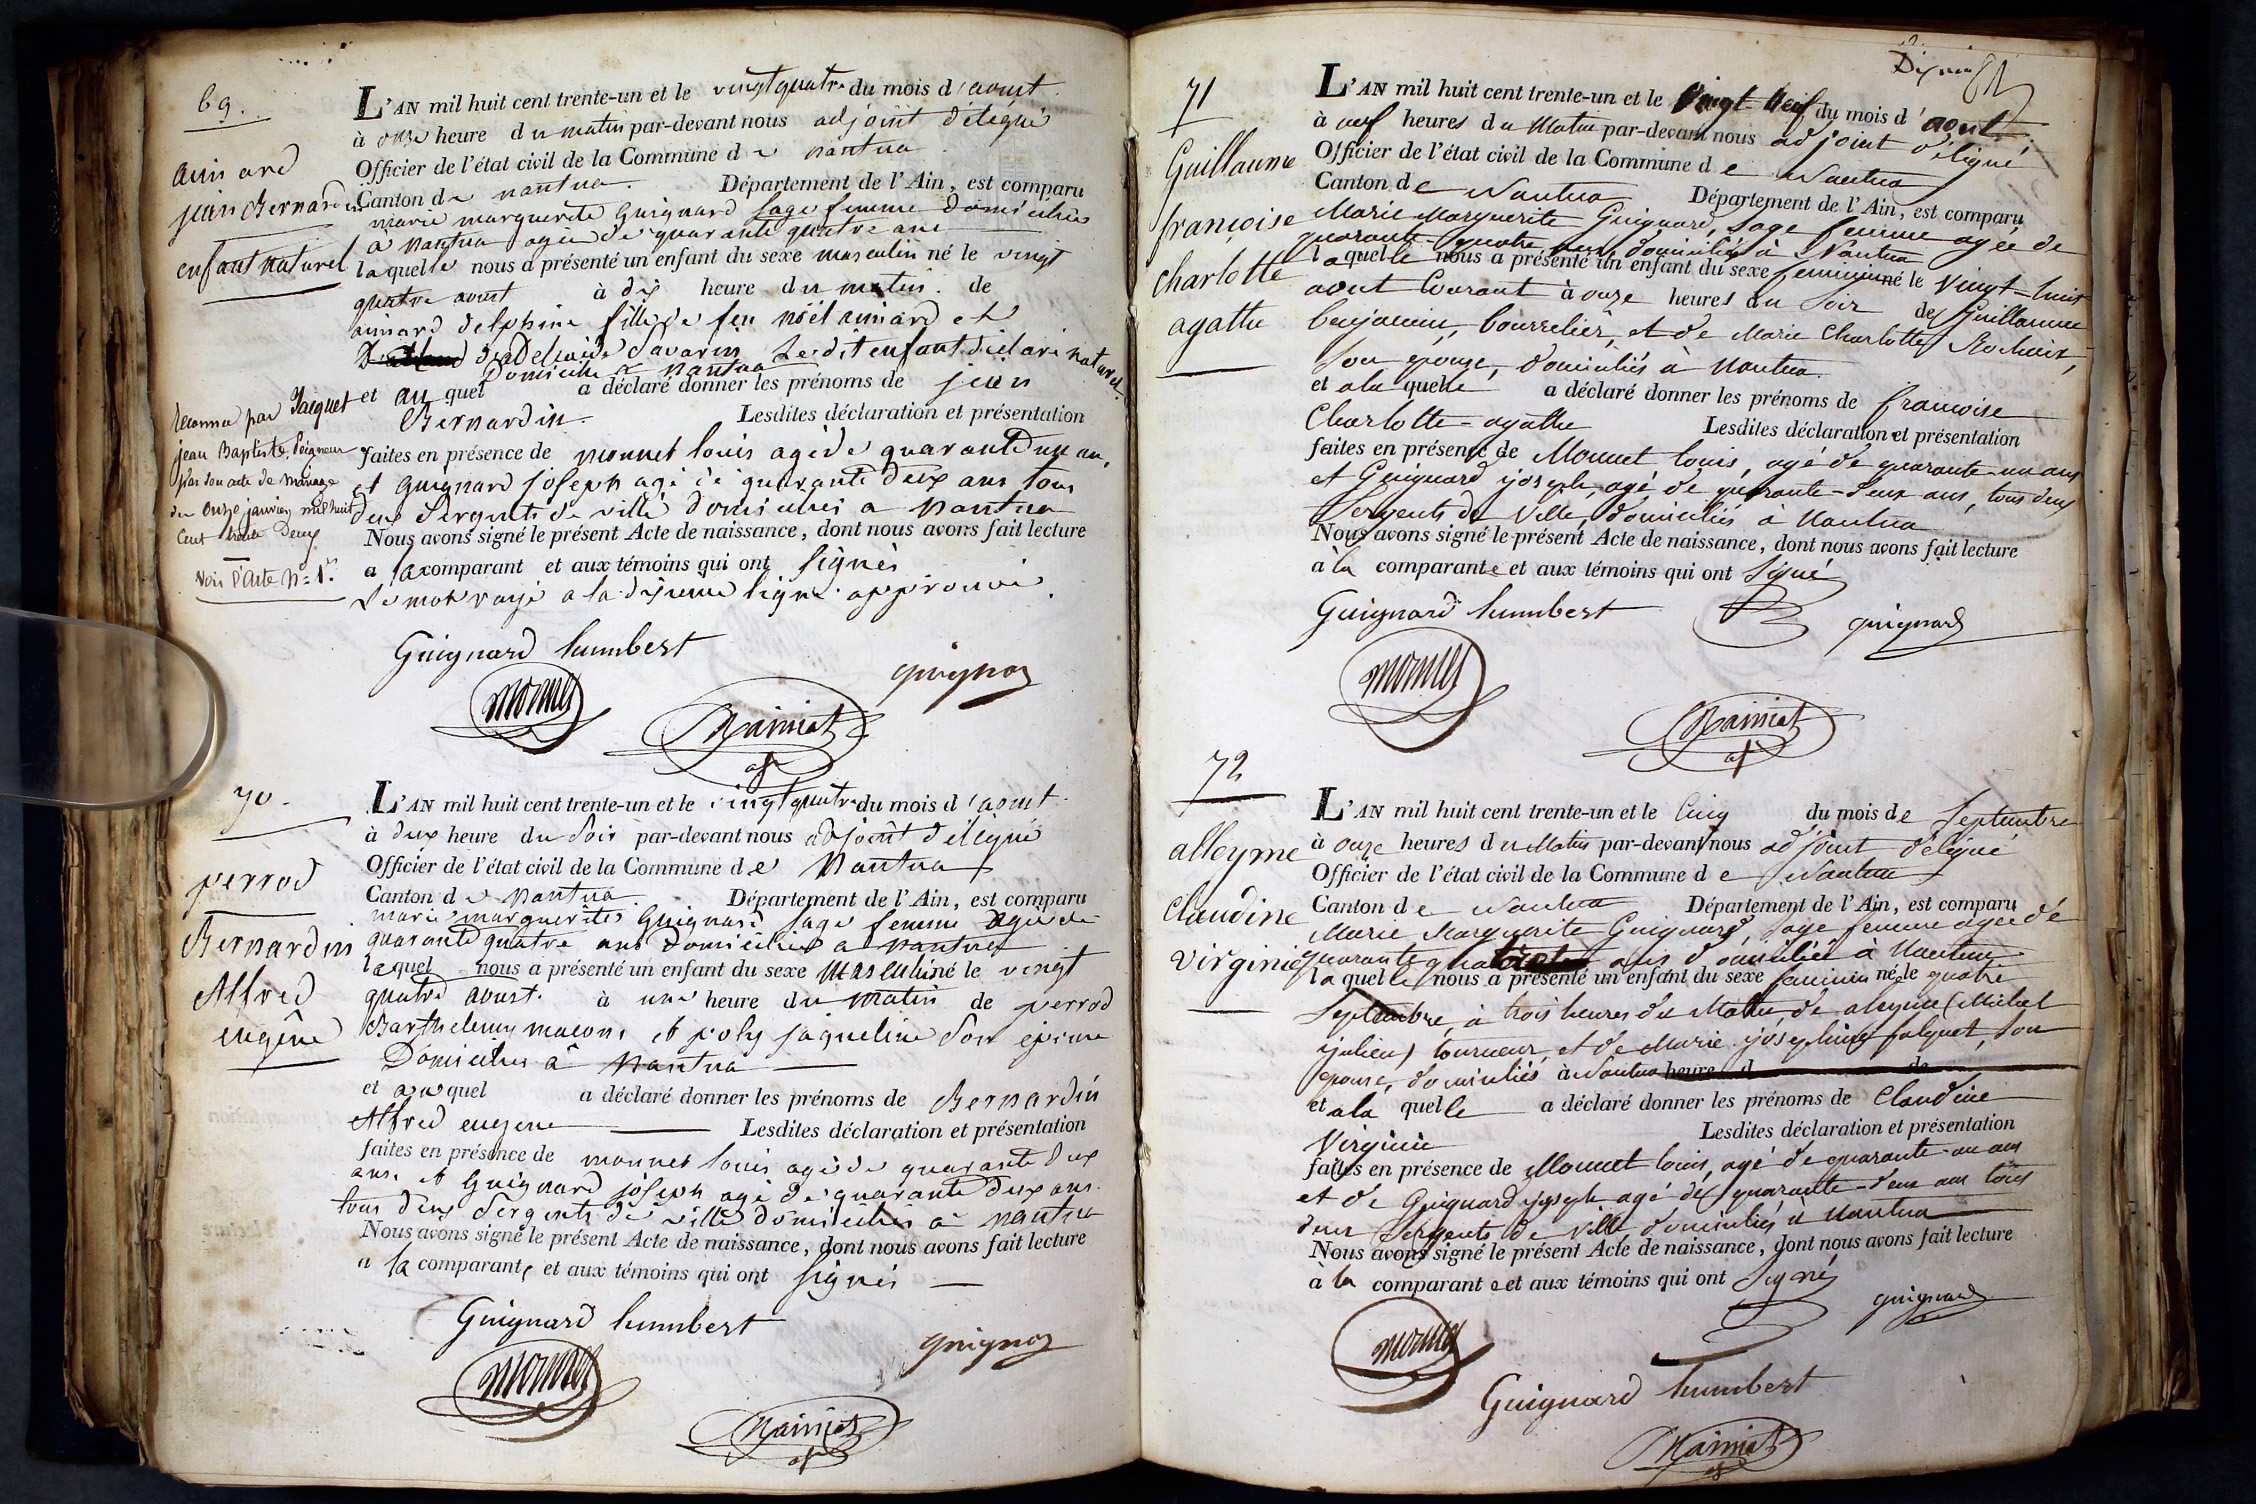 69.
aimard
jean Bernardin
enfant naturel
L'AN mil huit cent trente-un et le vingt quatre du mois d'aout
à onze heure du matin par-devant nous adjoint délégué
Officier de l'état civil de la Commune de nantua
Canton de nantua. Département de l'Ain, est comparu
marie marguerite Guignard sage femme domiciliée
a nantua agée de quarante quatre ans
laquelle nous a présenté un enfant du sexe masculin né le vingt
quatre aout à dix heure du matin. de
aimard delphine fille de feu noël aimard et
d'adelaide Savarin ledit enfant déclaré naturel
Domiciliée a nantua
et au quel a déclaré donner les prénoms de jean
Bernardin. Lesdites déclaration et présentation
faites en présence de monnet louis agé de quarante un an,
et guignard joseph agé de quarante deux ans tous
deux Sergents de ville domiciliés a nantua
Nous avons signé le présent Acte de naissance, dont nous avons fait lecture
a la comparant et aux témoins qui ont signés
Le mot rayé a la dixieme ligne approuvé.
reconnu par Jacquet
jean Baptiste, Peigneur
par son acte de mariage
du onze janvier mil huit
Cent trente Deux
Voir l'acte N° 1er
Guignard humbert
monnet
guignard
70.
perrod
Bernardin
Alfred
eugêne
L'AN mil huit cent trente-un et le vingt quatre du mois d'aout
à deux heure du soir par-devant nous adjoint délégué
Officier de l'état civil de la Commune de Nantua
Canton de nantua. Département de l'Ain, est comparu
marie marguerites Guignard sage femme agée de
quarante quatre ans domiciliée a nantua
laquel nous a présenté un enfant du sexe masculin né le vingt
quatre aout. à une heure du matin de perrod
Barthelemy macon, et poly jaqueline son epouse
Domiciliés à nantua
et auquel a déclaré donner les prénoms de Bernardin
Alfred eugene Lesdites déclaration et présentation
faites en présence de monnet louis agé de quarante deux
ans. et Guignard joseph agé de quarante deux ans.
tous deux Sergents de ville domiciliés a nantua
Nous avons signé le présent Acte de naissance, dont nous avons fait lecture
a la comparante et aux témoins qui ont signés
Guignard humbert
monnet
guignard
71
Guillaume
françoise
charlotte
agathe
L'AN mil huit cent trente-un et le Vingt-Neuf du mois d'aout
à neuf heures du Matin par-devant nous adjoint délégué
Officier de l'état civil de la Commune de Nantua
Canton de Nantua Département de l'Ain, est comparu
Marie Marguerite Guignard, sage femme agée de
quarante quatre ans domiciliée à Nantua
laquelle nous a présenté un enfant du sexe feminin né le Vingt-huit
aout Courant à onze heures du Soir de Guillaume
benjamin, bourrelier, et de Marie Charlotte
son epouse, domiciliés à Nantua.
et a la quelle a déclaré donner les prénoms de françoise
Charlotte-agathe Lesdites déclaration et présentation
faites en présence de Monnet louis, agé de quarante-un ans
et Guignard joseph, agé de quarante-deux ans, tous deux
Sergents de Ville, domiciliés à Nantua
Nous avons signé le présent Acte de naissance, dont nous avons fait lecture
à la comparante et aux témoins qui ont signé
Guignard humbert
guignard
monnet
72
alleyme
Claudine
virginie
L'AN mil huit cent trente-un et le Cinq du mois de Septembre
à onze heures du Matin par-devant nous adjoint délégué
Officier de l'état civil de la Commune de Nantua
Canton de Nantua Département de l'Ain, est comparu
Marie Marguerite Guignard, sage femme agée de
quarante quatre ans domiciliée à Nantua
laquelle nous a présenté un enfant du sexe feminin né le quatre
Septembre, à trois heures du Matin, de aleyme (Michel
julien) tourneur, et de Marie josephine falquet, son
epouse, domiciliés à Nantua heure d de
et a la quelle a déclaré donner les prénoms de Claudine
Virginie Lesdites déclaration et présentation
faites en présence de Monnet louis, agé de quarante-un ans
et de Guignard joseph agé de quarante-deux ans tous
deux Sergents de Ville, domiciliés a Nantua
Nous avons signé le présent Acte de naissance, dont nous avons fait lecture
à la comparante et aux témoins qui ont Signé
guignard
monnet
Guignard humbert